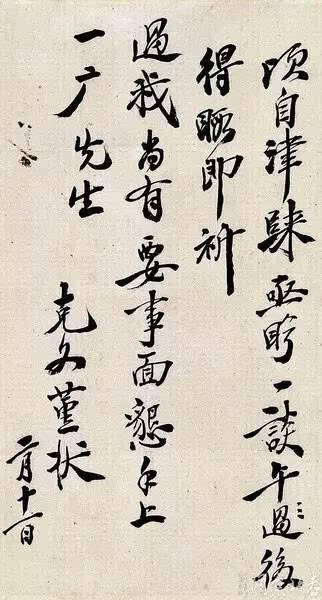 頃自津歸亟盼一談午過後
得暇即祈
過我尚有要事面懇手上
一广先生
克文堇狀
二月十一日